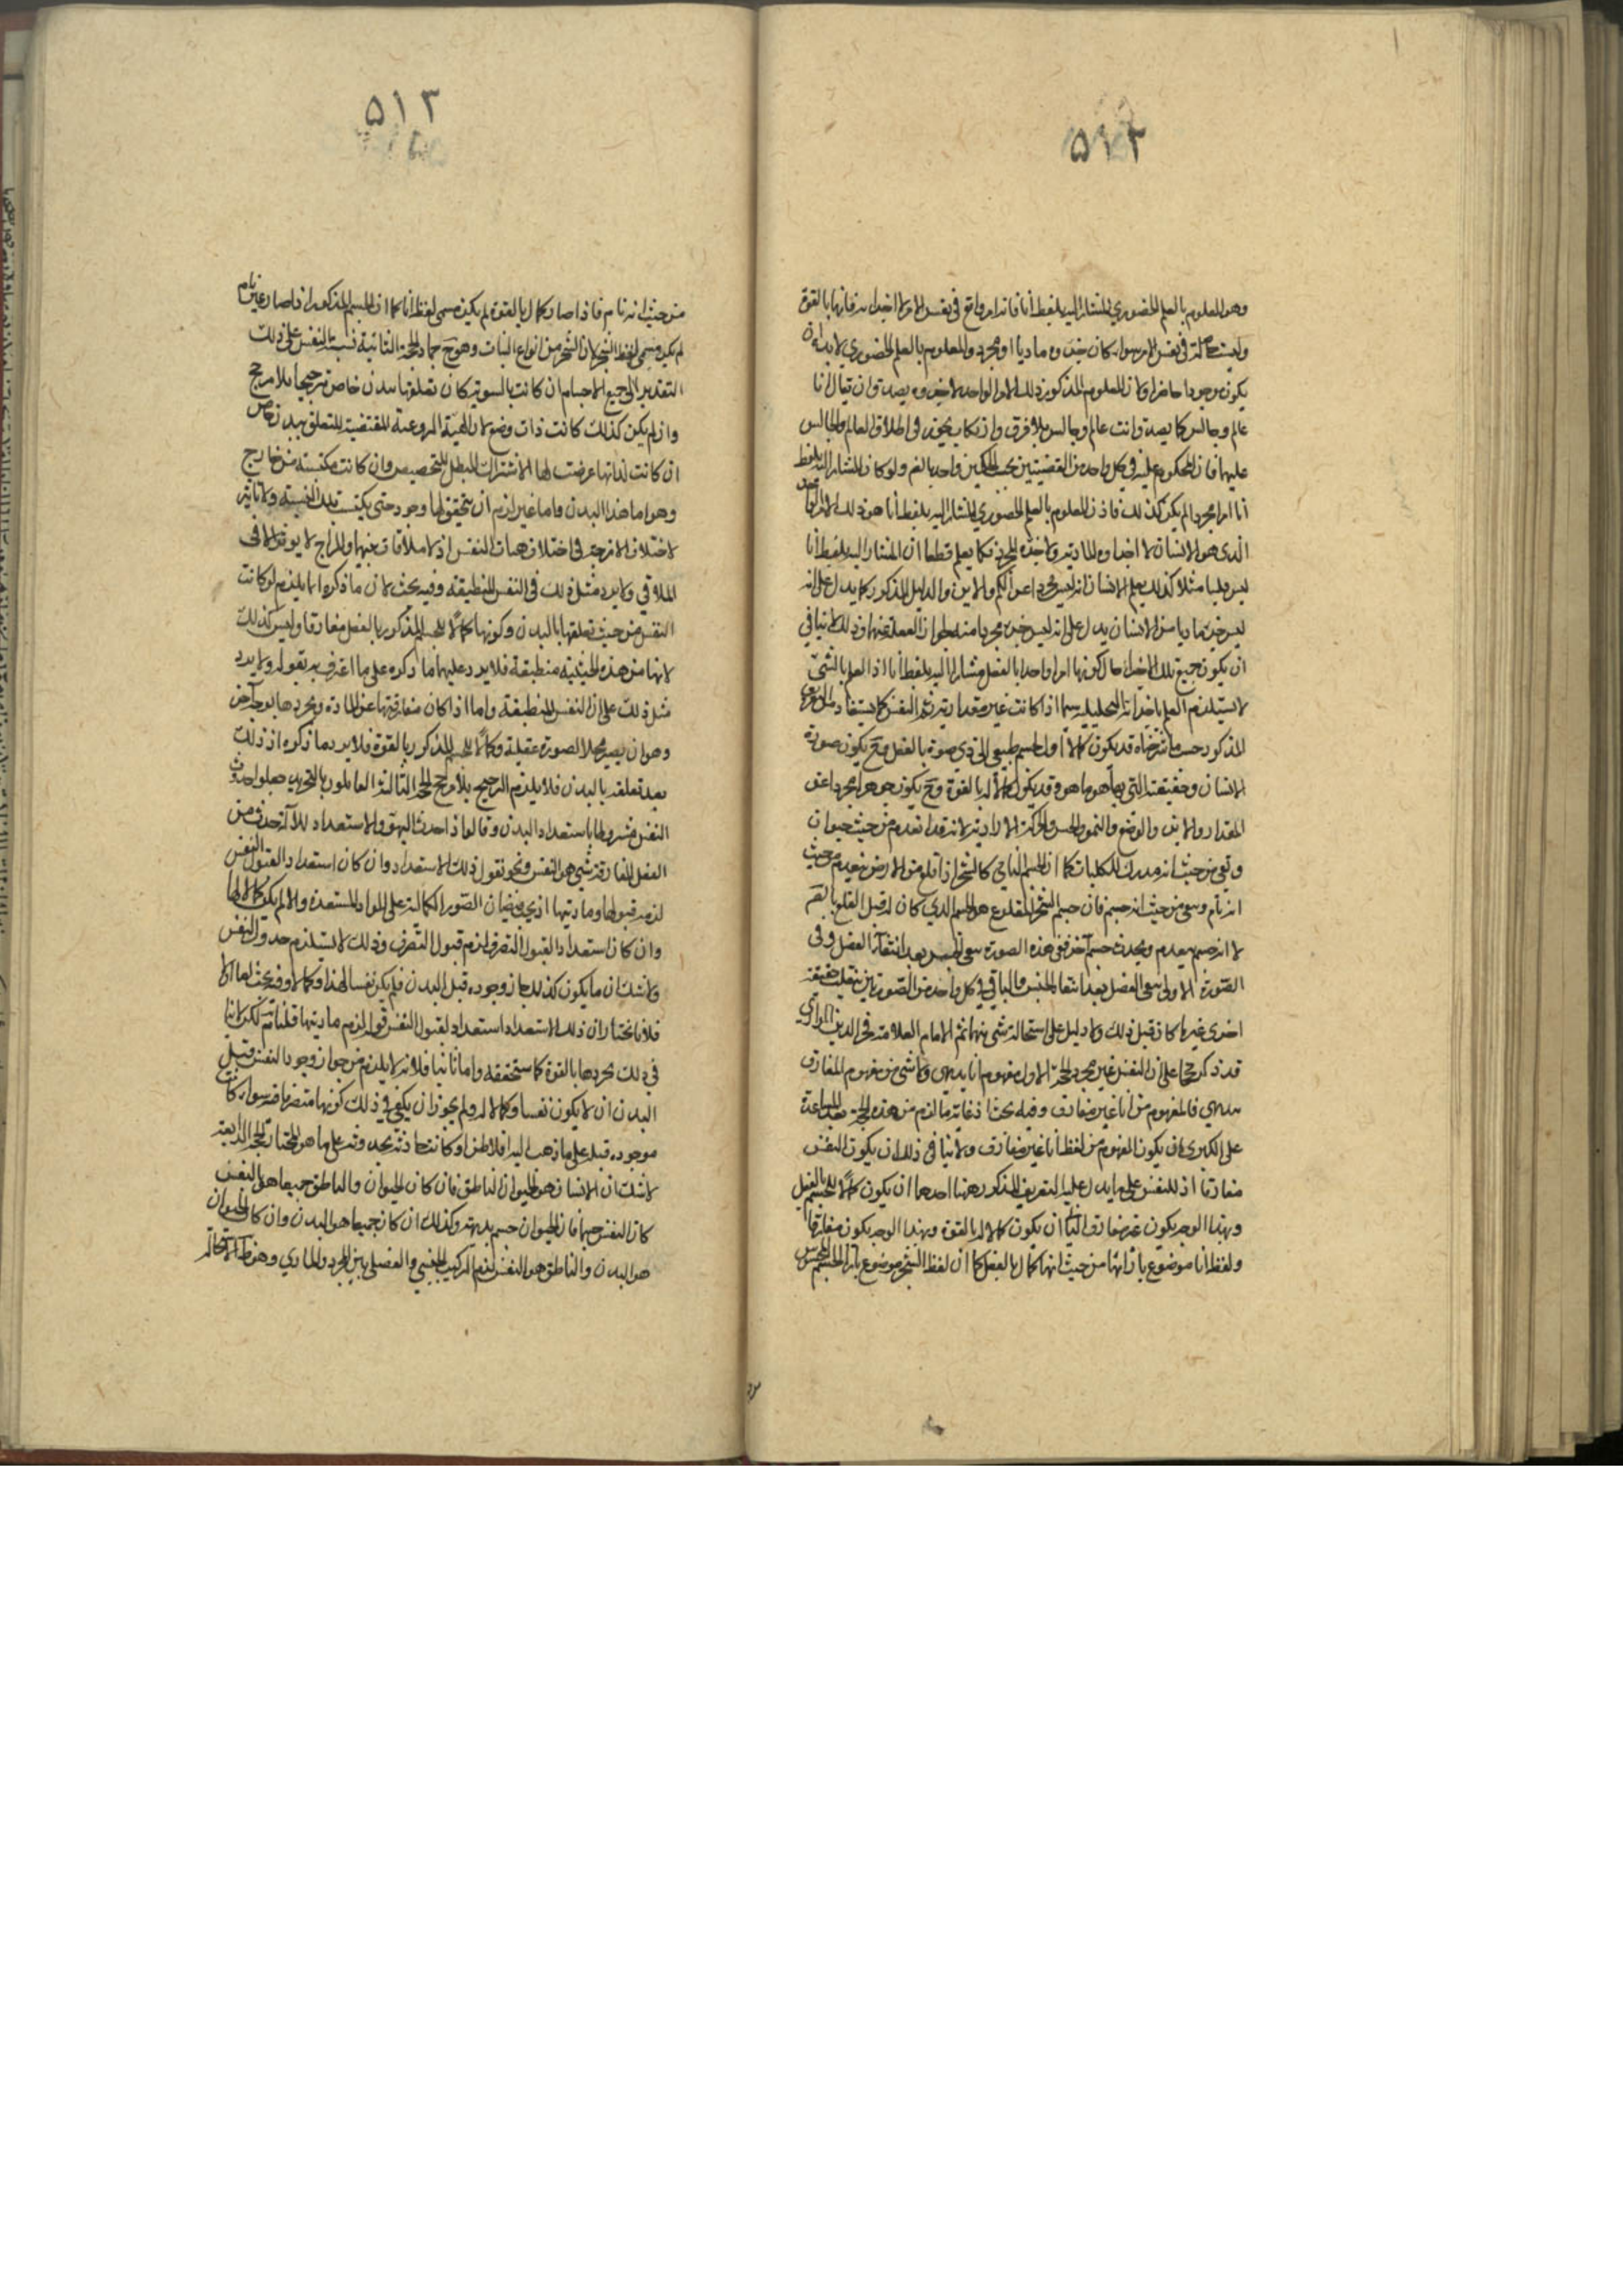 ٥١٢
وهو المعلوم بالعلم الحضوري المشار اليه بلفظ أنا فانه امر واقع في نفس الامر اجزاء فانها بالقوة
وليست حاصلة في نفس الامر سواء كان جزؤه ماديا او مجردا والمعلوم بالعلم الحضوري لا بد ان
يكون موجودا حاضرا ولان المعلوم المذكور ذلك الامر الواحد لا جزؤه يصدق ان يقال انا
عالم وجالس كما يصدق انت عالم وجالس بلا فرق وان كان في اطلاق العالم والجالس
عليهما فان المحكوم عليه في كل واحد من القضيتين بحسب الحكمين واحد نعم ولو كان المشار اليه بلفظ
أنا امرا مجردا لم يكن كذلك فاذن المعلوم بالعلم الحضوري المشار اليه بلفظ أنا هو ذلك الامر الواحد
الذي هو الانسان لا اجزاؤه المادية ولا جزؤه المجرد فكما يعلم قطعا ان المشار اليه بلفظ أنا
ليس مثلا كذلك يعلم الانسان انه ليس مجردا عن الكم والاين والدليل المذكور كما يدل على انه
ليس جزء ماديا من الانسان يدل على انه ليس جزء مجردا منه لجواز الغفلة عنها وذلك لا ينافي
ان يكون جميع تلك الاجزاء حال كونها امرا واحدا بالفعل مشارا اليه بلفظ أنا اذ العلم بالشيء
لا يستلزم العلم باجزائه التحليلية سيما اذا كانت غير مقدارية ثم النفس كما يستفاد من التعريف
المذكور حسب ما شرحناه قد يكون كمالا اول لجسم طبيعي الي ذي صورة بالفعل وح يكون صورة
الانسان وحقيقته التي بها هو ما هو وقد يكون كمالا له بالقوة وح يكون جوهرا مجردا عن
المقدار والاين والوضع والنمو والحس والحركة الارادية لانه قد انعدم من حيث حيوان
وبقي من حيث انه مدرك للكليات كما ان الجسم النامي كالشجر اذا قلع من الارض ينعدم من حيث
انه نام وبقي من حيث انه جسم فان جسم الشجر المقلوع هو الجسم الذي كان له قبل القلع بالقوة
لا انه جسم ينعدم ويحدث جسم آخر ففي هذه الصورة يبقى الجنس بعد انتفاء الفصل وفي
الصورة الاولى يبقى الفصل بعد انتفاء الجنس والباقي في كل واحد من الصورتين ينقلب حقيقة
اخرى غير ما كان قبل ذلك ولا دليل على استحالة شيء منها ثم الامام العلامة فخر الدين الرازي
قد ذكر حججا على ان النفس غير مجرد الحجة الاولى مفهوم انا بديهي ولا شيء من مفهوم المفارق
بديهي فالمفهوم من أنا غير مفارق وفيه بحث اذ غاية ما لزم من هذه الحجة بعد المساعدة
على الكبرى ان يكون المفهوم من لفظ أنا غير مفارق ولا ينافي ذلك ان يكون النفس
مفارقا اذ للنفس على ما يدل عليه التعريف المذكور جهتان احدهما ان يكون كمالا للجسم بالفعل
وبهذا الوجه يكون غير مفارق الثاني ان يكون كمالا له بالقوة وبهذا الوجه يكون مفارقا
ولفظ أنا موضوع بازائها من حيث انها كمال بالفعل كما ان لفظ الشجر موضوع بازاء الجسم المخصوص
٥١٣
من حيث انه نام فاذا صار كمالا بالقوة لم يكن مسمى لفظ أنا كما ان الجسم المذكور اذا صار غير نام
لم يكن مسمى لفظ الشجر لان الشجر من انواع النبات وهو ح جماد الحجة الثانية نسبة النفس على ذلك
التقدير الى جميع الاجسام ان كانت بالسوية كان تعلقها ببدن خاص ترجيحا بلا مرجح
وان لم يكن كذلك كانت ذات وضع لان الهيئة المقتضية للتعلق ببدن خاص
ان كانت لذاتها عرضت لها الاشتراك المبطل للتخصيص وان كانت مكتسبة من خارج
وهو اما هذا البدن واما غيره لزم ان يتحقق لها وجود حتى يكتسب تلك الهيئة ولا تأثير
لاختلاف الامزجة في اختلاف هيات النفس اذ لا ملاقات بينهما والمزاج لا يؤثر الا في
الملاقي ولا يرد مثل ذلك في النفس المنطبقة وفيه بحث لان ما ذكره انما يلزم لو كانت
النفس من حيث تعلقها بالبدن وكونها كمالا للجسم المذكور بالفعل مفارقا وليس كذلك
لانها من هذه الحيثية منطبقة فلا يرد عليها ما ذكره على ما اعترف به بقوله ولا يرد
مثل ذلك على ان النفس المنطبقة واما اذا كان مفارقتها عن المادة وتجردها بوجه آخر
وهو ان يصير محلا لصورة عقلية وكمالا للجسم المذكور بالقوة فلا يرد ما ذكره اذ ذلك
بعد تعلقه بالبدن فلا يلزم الترجيح بلا مرجح الحجة الثالثة القائلون بالتجريد جعلوا حدوث
النفس مشروطا باستعداد البدن وقالوا اذا حدث البدن والاستعداد للآلة حدث من
العقل المفارق شيء هو النفس ونحن نقول ذلك الاستعداد ان كان استعداد القبول النفس
لزم قبولها وماديتها اذ يجب فيضان الصور الكمالية على المواد المستعدة والا لم يكن كمالا لها
وان كان استعداد القبول التصرف لزم قبول التصرف وذلك لا يستلزم حدوث النفس
ولا شك ان ما يكون كذلك جاز وجوده قبل البدن فلم يكن نفسا لهذا وكمالا وفيه بحث اما اولا
فلانا نختار ان ذلك الاستعداد استعداد لقبول النفس قوله لزم ماديتها قلنا نعم لكن لا ينافي
في ذلك تجردها بالقوة كما ستحققه واما ثانيا فلانه لا يلزم من جواز وجود النفس قبل
البدن ان لا يكون نفسا وكمالا له ولم يجوز ان يكفي في ذلك كونها متصرفا فيه سواء كانت
موجودة قبله على ما ذهب اليه افلاطن او كانت حادثة بحدوثه على ما هو المختار الحجة الرابعة
لا شك ان الانسان هو الحيوان الناطق فان كان الحيوان والناطق جميعا هو النفس
كان النفس جسما فان الحيوان جسم بديهة وكذلك ان كان جميعا هو البدن وان كان الحيوان
هو البدن والناطق هو النفس لزم التركيب الجنسي والفصلي بين المجرد والمادي وهو ظاهر الاستحالة